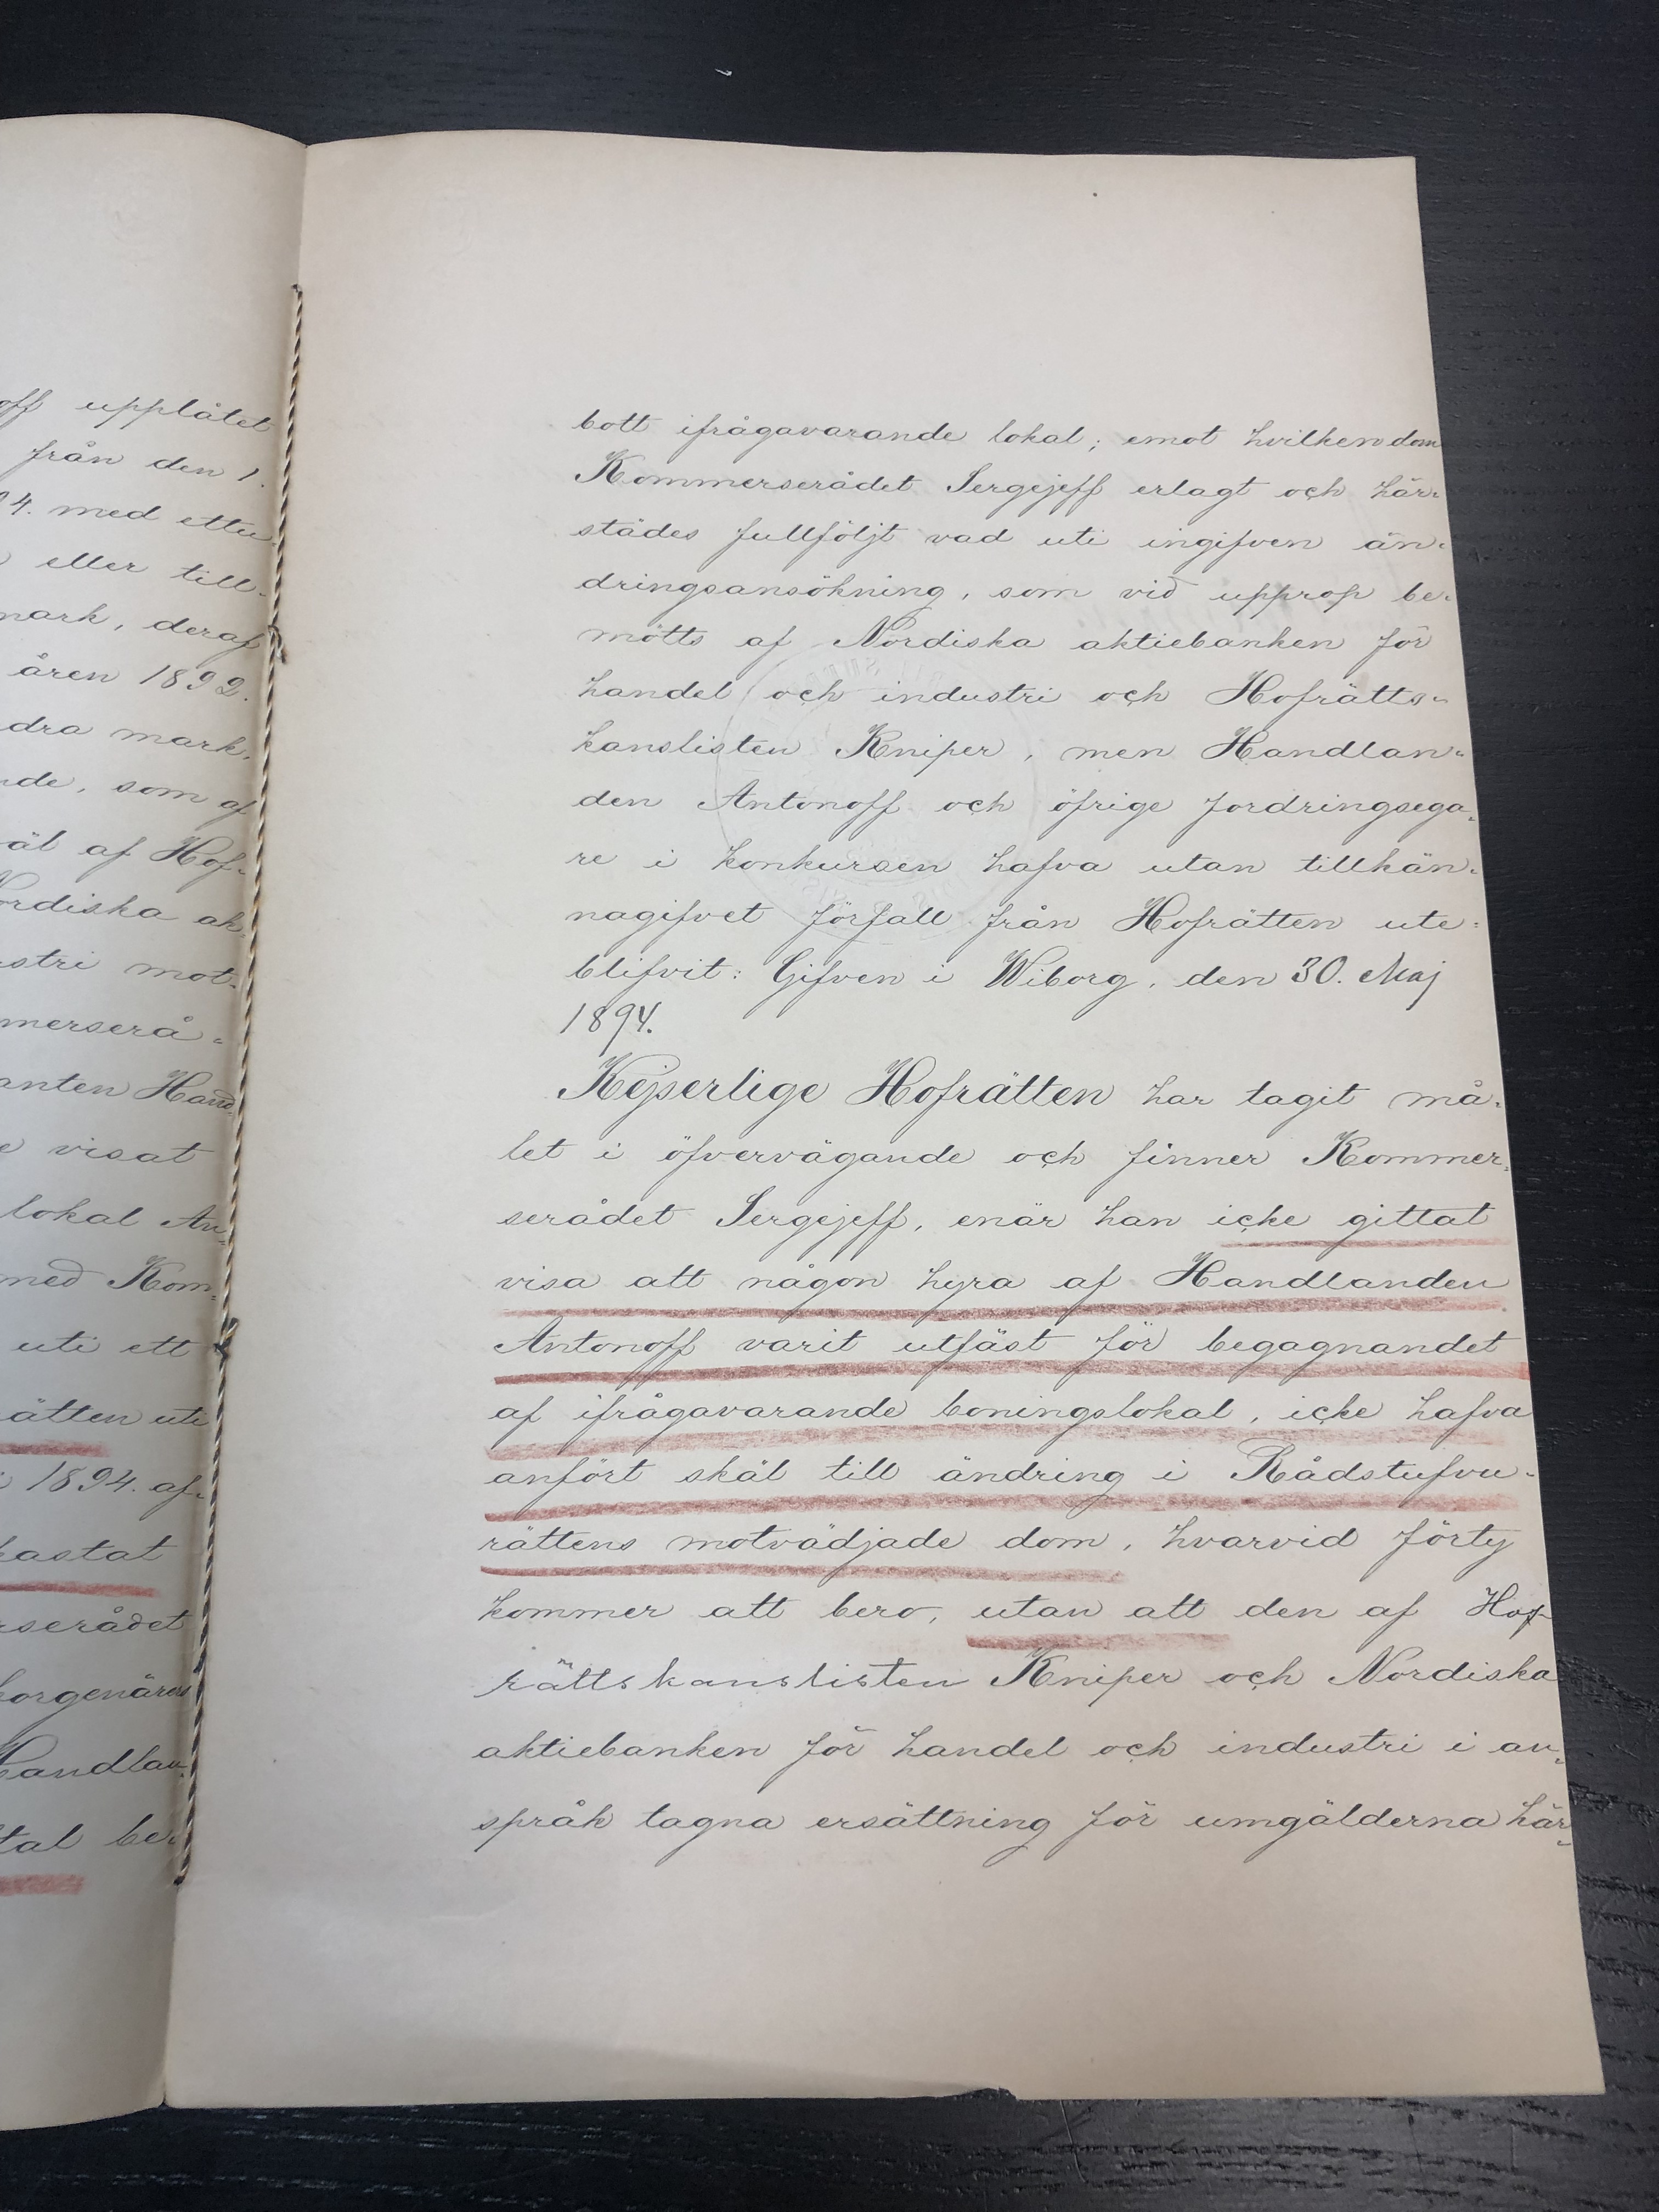 off upplåtet
från den 1.
94. med ettu
eller till-
mark, deraf
åren 1892.
dra mark.
nde, som af
äl af Hof-
ordiska ak-
stri mot-
merserå-
anten Hand-
visat
lokal An-
med Kom-
uti ett
ätten uti
1894. af-
kastat
rserådet
borgenären
Handlan-
tal be-
bott ifrågavarande lokal; emot hvilken dom
Kommerserådet Sergejeff erlagt och här-
städes fullföljt vad uti ingifven än-
dringsansökning, som vid upprop be-
mötts af Nordiska aktiebanken för
handel och industri och Hofrätts-
kanslisten Kniper, men Handlan-
den Antonoff och öfrige fordringsega-
re i konkursen hafva utan tillkän-
nagifvet förfall från Hofrätten ute-
blifvit: Gifven i Wiborg, den 30. Maj
1894.
Kejserlige Hofrätten har tagit må-
let i öfvervägande och finner Kommer-
serådet Sergejeff, enär han icke gittat
visa att någon hyra af Handlanden
Antonoff varit utfäst för begagnandet
af ifrågavarande boningslokal, icke hafva
anfört skäl till ändring i Rådstufvu-
rättens motvädjade dom, hvarvid förty
kommer att bero, utan att den af Hof-
rättskanslisten Kniper och Nordiska
aktiebanken för handel och industri i an-
språk tagna ersättning för umgälderna här-